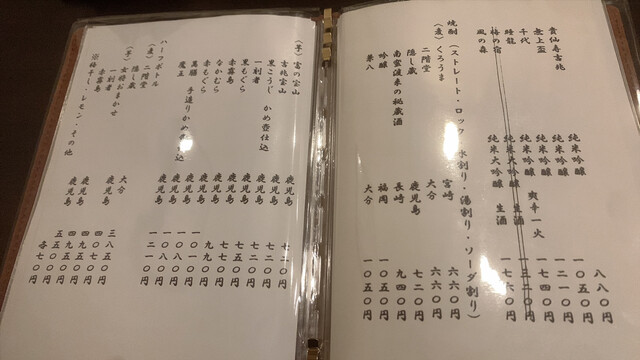 貴仙寿吉兆 純米吟醸 八八〇円
無上盃 純米吟醸 一〇五〇円
千代 純米吟醸 爽辛一火 一二一〇円
睡龍 純米吟醸 生酒 一七四〇円
梅の宿 純米大吟醸 一三二〇円
風の森 純米大吟醸 生酒 一七六〇円
焼酎 (ストレート・ロック・水割り・湯割り・ソーダ割り)
(麦) くろうま 宮崎 六六〇円
二階堂 大分 六六〇円
隠し蔵 鹿児島 七二〇円
南蛮渡来の秘蔵酒 長崎 九四〇円
吟醸 福岡 一〇五〇円
兼八 大分 一〇五〇円
(芋) 富の宝山 鹿児島 七二〇円
吉兆宝山 鹿児島 七二〇円
黒こうじ かめ壺仕込 鹿児島 七二〇円
一刻者 鹿児島 七五〇円
黒もぐら 鹿児島 七七〇円
赤霧島 鹿児島
なかむら 鹿児島 九九〇円
赤もぐら 鹿児島 一〇一〇円
萬膳 手造りかめ壺仕込 鹿児島 一〇八〇円
魔王 鹿児島 一二一〇円
ハーフボトル
(麦) 二階堂 大分 三八五〇円
隠し蔵 鹿児島 四〇七〇円
(芋) 一刻者 鹿児島 四九五〇円
女将おまかせ
赤霧島 鹿児島
※梅干し・レモン・その他 各七〇円